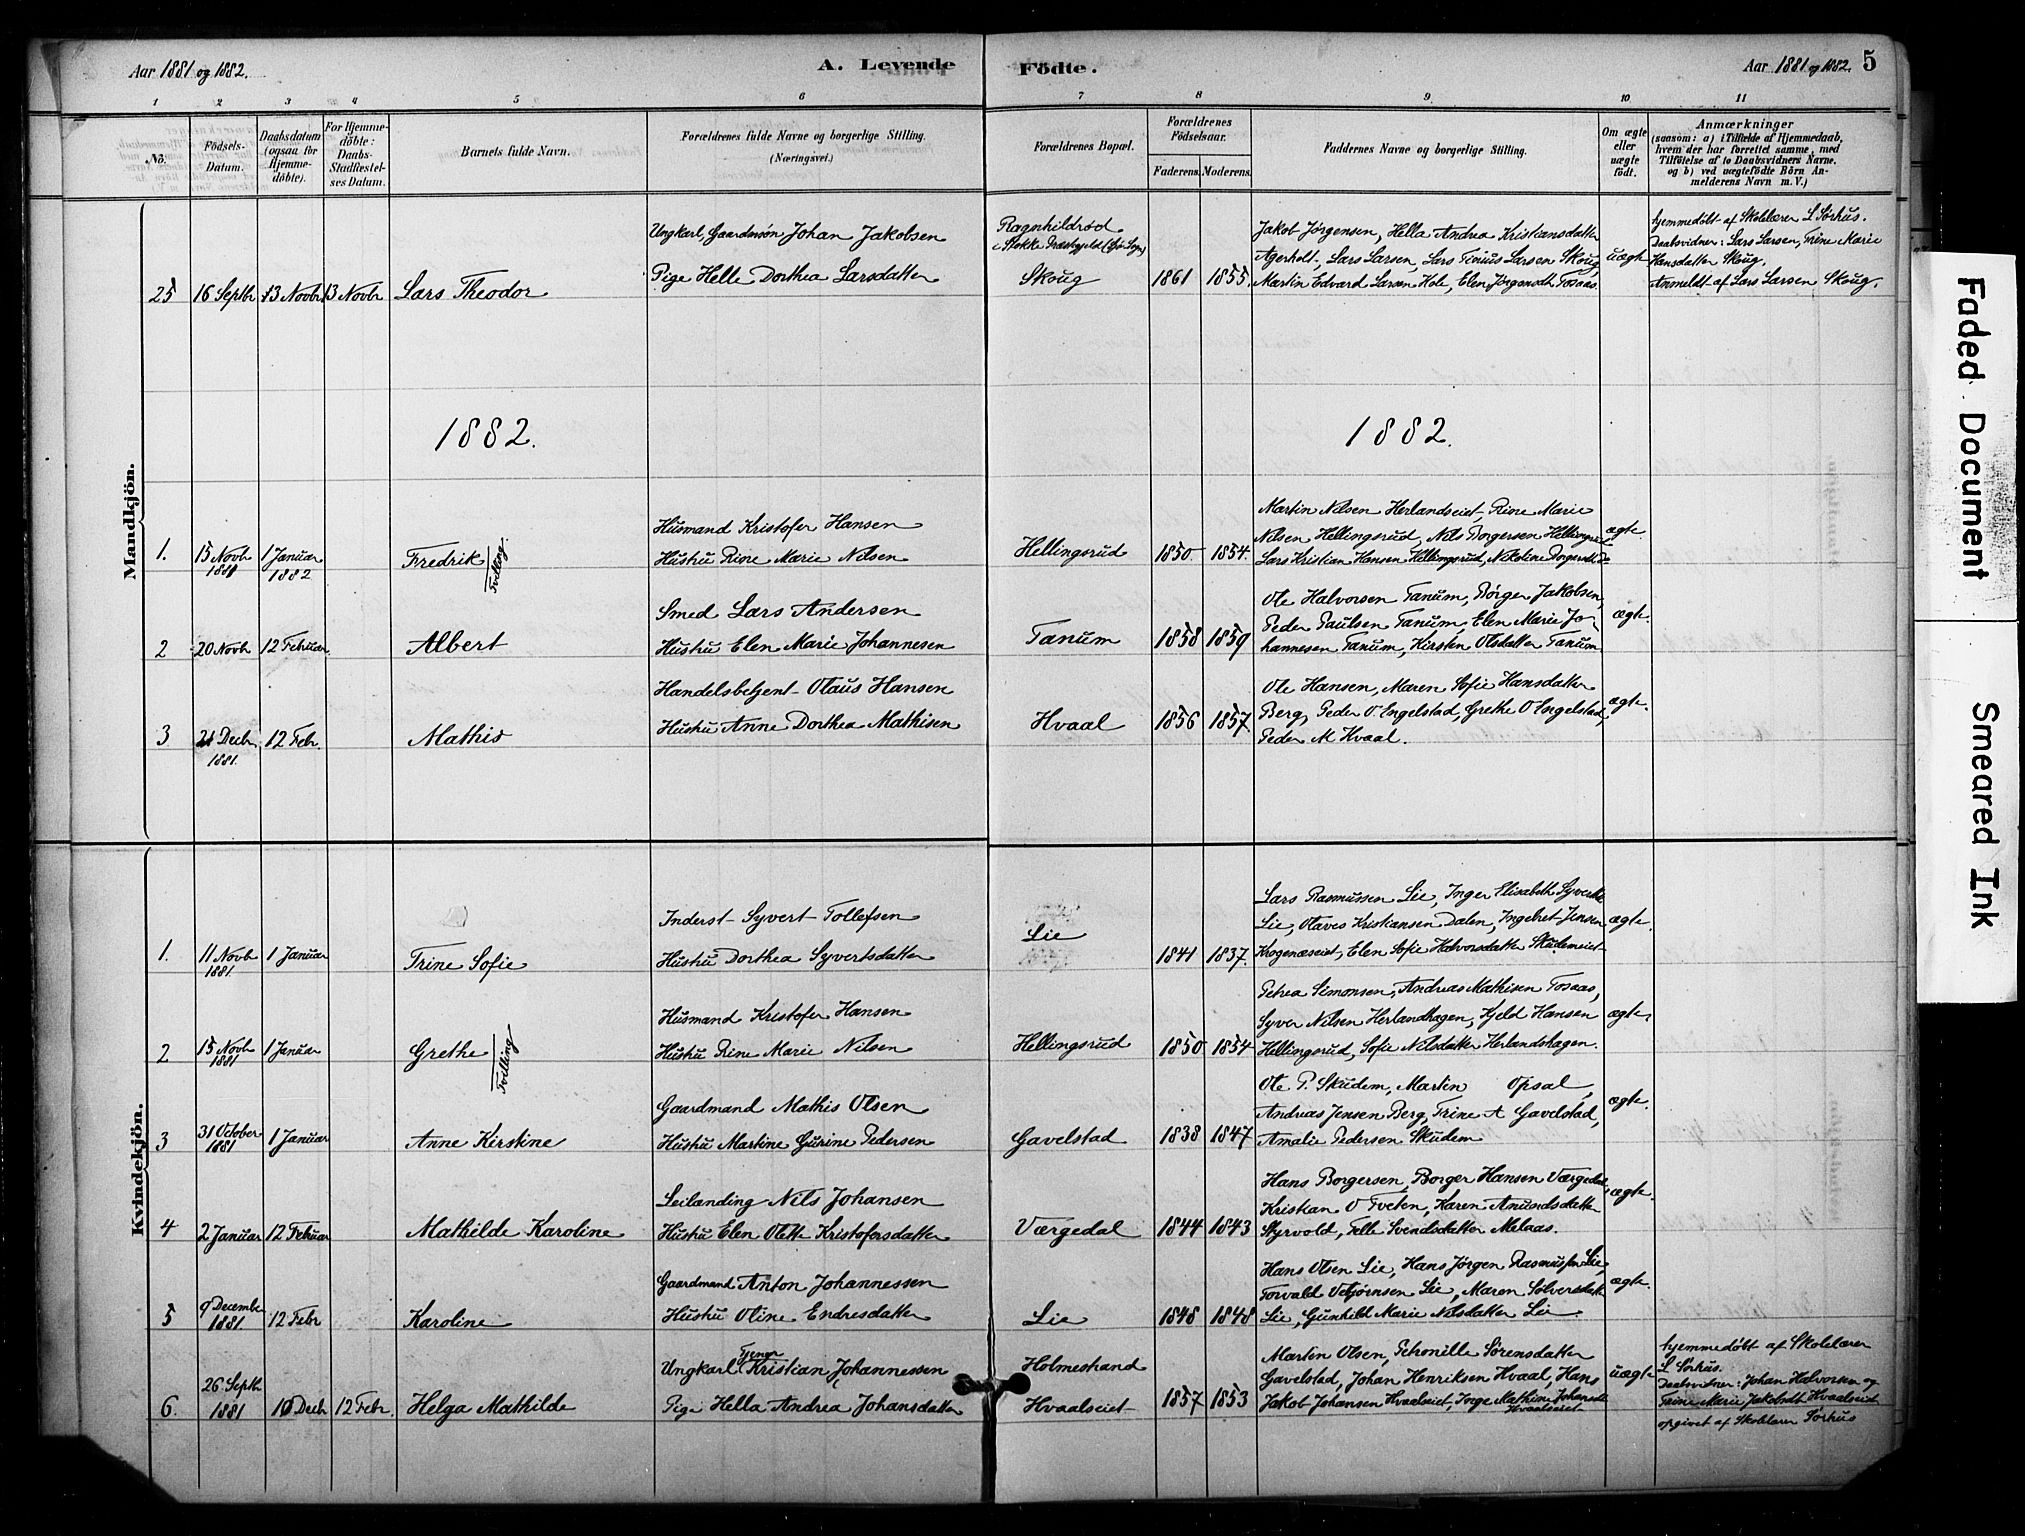 Aar 1881 og 1882.
A. Levende Födte.
Aar 1881 og 1882. 5
1 2 3 4 5 6 7 8 9 10 11
No.
Födsels-Datum.
Daabsdatum (ogsaa for Hjemme-döbte).
For Hjemme-döbte: Daabs-Stadfæstel-ses Datum.
Barnets fulde Navn.
Forældrenes fulde Navne og borgerlige Stilling.
(Næringsvei.)
Forældrenes Bopæl.
Forældrenes Födselsaar.
Faderens. Moderens.
Faddernes Navne og borgerlige Stilling.
Om ægte eller uægte födt.
Anmærkninger
(saasom: a) i Tilfælde af Hjemmedaab,
hvem der har forrettet samme, med
Tilföielse af to Daabsvidners Navne.
og b) ved uægtefödte Börn An-
melderens Navn m. V.)
Mandkjön.
25 16 Septbr 13 Novbr 13 Novbr Lars Theodor
Ungkarl, Gaardmsøn Johan Jakobsen
Pige Helle Dorthea Larsdatter
Ragnhildrød
i Stokke Præstegjeld
Skoug 1861 1855.
Jakob Jørgensen, Hella Andrea Kristiansdatter
Agerholt, Lars Larsen, Lars Tinius Larsen Skoug,
Martin Edvard Larsen Hole, Elen Jørgensdt Fosaas.
uægte
hjemmedøbt af Skolelærer L Sørhus.
Daabsvidner: Lars Larsen, Trine Marie
Hansdatter Skoug.
Anmeldt af Lars Larsen Skoug.
1882. 1882.
1. 15 Novbr 1881 1 Januar 1882 Fredrik Tvilling
Husmand Kristofer Hansen
Hustru Rine Marie Nilsen
Hellingsrud 1850 1854.
Martin Nilsen Herlandseiet, Rine Marie
Nilsen Hellingsrud, Nils Borgersen Hellingsrud
Lars Kristian Hansen Hellingsrud, Nikoline
ægte
2 20 Novb. 12 Februar. Albert
Smed Lars Andersen
Hustru Elen Marie Johannesen
Tanum 1858 1859
Ole Halvorsen Tanum, Börger Jakobsen,
Peder Paulsen Tanum, Elen Marie Jo-
hannesen Tanum, Kirsten Olsdatter Tanum
ægte.
3 21 Decbr. 1881. 12 Febr. Mathis
Handelsbetjent Olaus Hansen
Hustru Anne Dorthea Mathisen
Hvaal 1856 1857.
Ole Hansen, Maren Sofie Hansdatter
Berg, Peder O Engelstad, Grethe O Engelstad,
Peder M Hvaal.
ægte.
Kvindekjön.
1. 11 Novb 1881. 1 Januar Trine Sofie
Inderst Syvert Tollefsen
Hustru Dorthea Syvertsdatter
Lie 1841 1837.
Lars Rasmussen Lie, Inger Elisabeth Syvertsd
Lie, Olaves Kristiansen Dalen, Ingebret Jensen
Krogenæseiet, Elen Sofie Halvorsdatter Skudemeiet
ægte.
2 15 Novb 1881 1 Januar Grethe Tvilling
Husmand Kristofer Hansen
Hustru Rine Marie Nilsen
Hellingsrud 1850 1854
Petrea Simonsen, Andreas Mathisen Fosaas,
Syver Nilsen Herlandhagen, Kjeld Hansen
Hellingsrud, Sofie Nilsdatter Herlandshagen.
ægte.
3 31 October 1881 1 Januar Anne Kirstine
Gaardmand Mathis Olsen
Hustru Martine Gurine Pedersen
Gavelstad 1838 1847.
Ole P. Skudem, Martin Opsal,
Andreas Jensen Berg, Trine A Gavelstad,
Amalie Pedersen Skudem
ægte.
4 2 Januar 12 Februar Mathilde Karoline
Leilænding Nils Johansen
Hustru Elen Olette Kristofersdatter
Værgedal 1844 1843
Hans Borgersen, Borger Hansen Værgedal,
Kristian O Tveten, Karen Amundsdatter
Styrvold, Helle Svendsdatter Melaas.
ægte.
5 9 December 1881. 12 Febr Karoline
Gaardmand Anton Johannessen
Hustru Oline Endresdatter
Lie 1848 1848
Hans Olsen Lie, Hans Jörgen Rasmussen Lie,
Torvald Vebjörnsen Lie, Maren Sölversdatt
Lie, Gunhild Marie Nilsdatter Lie.
ægte.
6. 26 Septbr. 1881 10 Decbr 12 Febr. Helga Mathilde
Ungkarl Tjener Kristian Johannessen
Pige Hella Andrea Johansdatter
Holmestrand
Hvaalseiet 1857 1853
Martin Olsen, Pehonille Sörensdatter
Gavelstad, Johan Henriksen Hvaal, Hans
Jakob Johansen Hvaalseiet, Inge Mathine Johansdt
Hvaalseiet
uægte
hjemmedøbt af Skolelærer
L Sørhus.
Daabsvidner: Johan Halvorsen og
Trine Marie Jakobsdt Hvaalseiet
opgivet af Skolelærer Sørhus
Faded Document
Smeared Ink